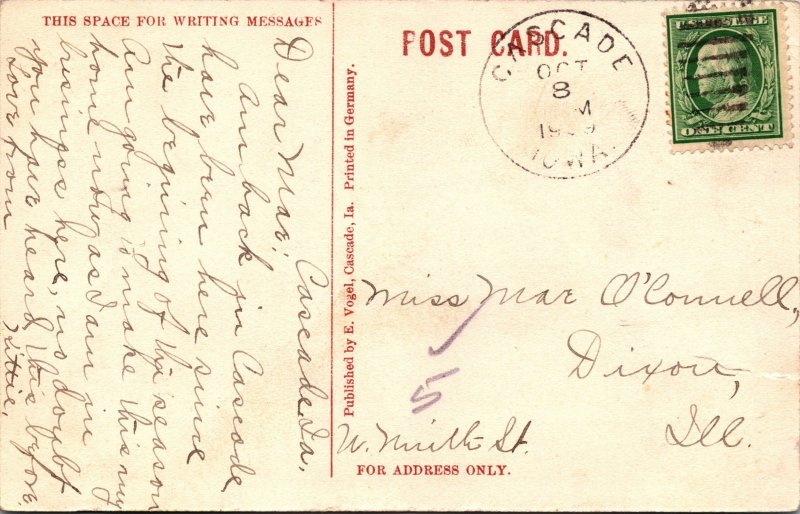 THIS SPACE FOR WRITING MESSAGES
POST CARD.
CASCADE
OCT
8
M
1909
IOWA.
ONE CENT
Cascade, Ia.
Dear Mae;
Am back in Cascade
have been here since
the begining of the season
Am going to make this my
home now, as I am in
business here, no doubt
you have heard this before.
Love from
Published by E. Vogel, Cascade, Ia. Printed in Germany.
Miss Mae O'Connell,
Dixon,
Ill.
5
St.
FOR ADDRESS ONLY.